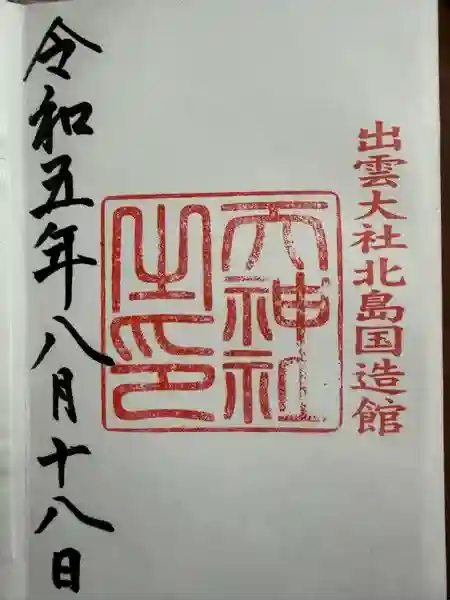 出雲大社北島国造館
天神社
之印
令和五年八月十八日